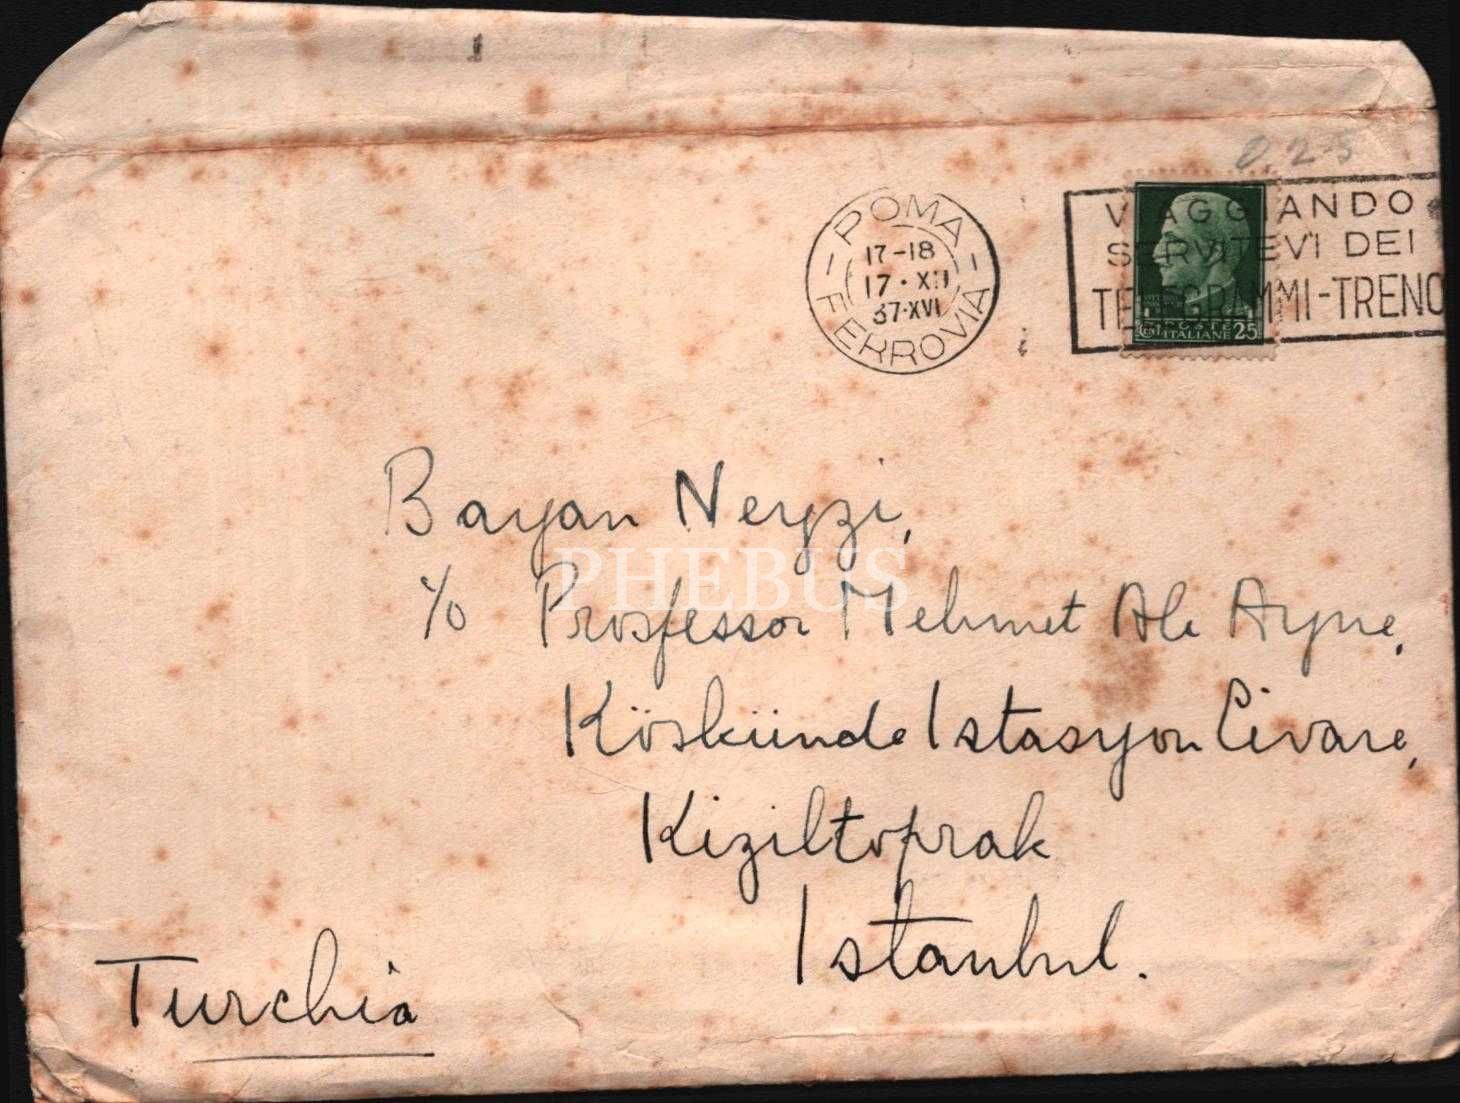 0.25
ROMA
FERROVIA
17-18
17·XII
37·XVI
VIAGGIANDO
SERVITEVI DEI
TELEGRAMMI-TRENO
POSTE
ITALIANE 25
Bayan Neyzi,
c/o Prosfessor Mehmet Ali Ayne,
Köskünde Istasyon Civare,
Kiziltoprak
Istanbul.
Turchia
PHEBUS